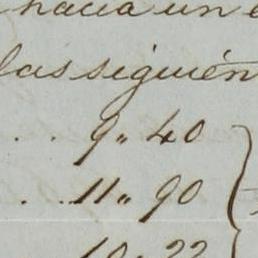 hacia un
las siguien
. . 9.. 40
. . . 11.. 90
10.. 22